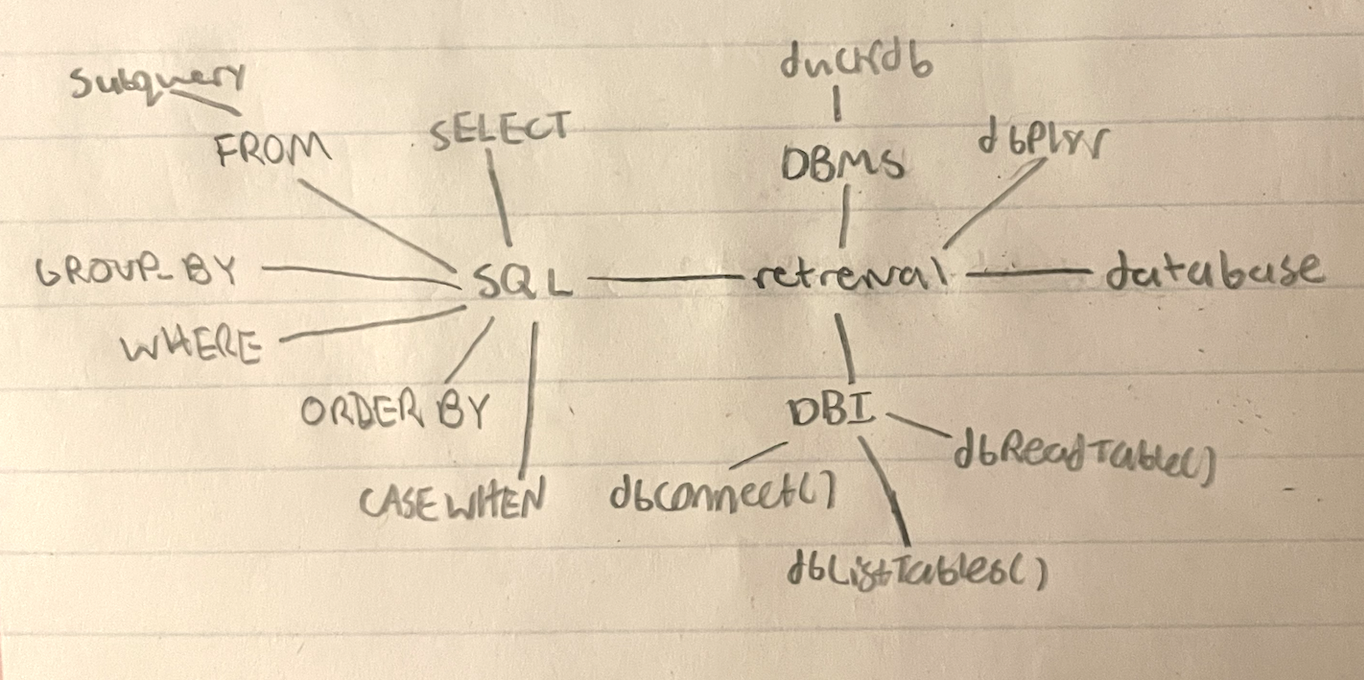 duckdb
Subquery
SELECT
dbplyr
FROM
DBMS
GROUP-BY
SQL
retreival
database
WHERE
ORDER BY
DBI
dbReadTable()
CASE WHEN
dbconnect()
dbListTables()